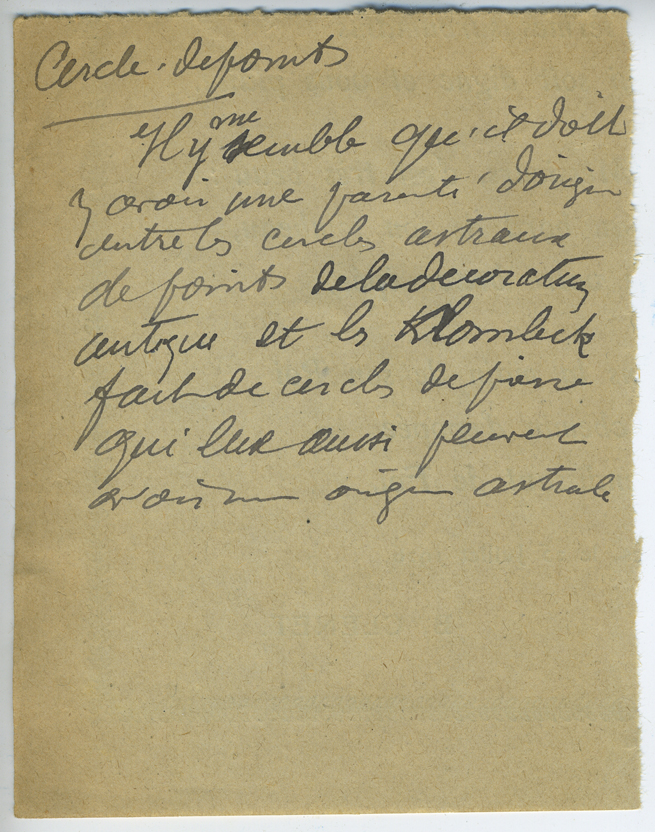 Cercle de points
Il me semble qu'il doit
y avoir une parenté d'origin
entre les cercles astraux
de points de la décoration
antique et les Kromleck
fait de cercles de pierre
qui eux aussi peuvent
avoir une origine astrale